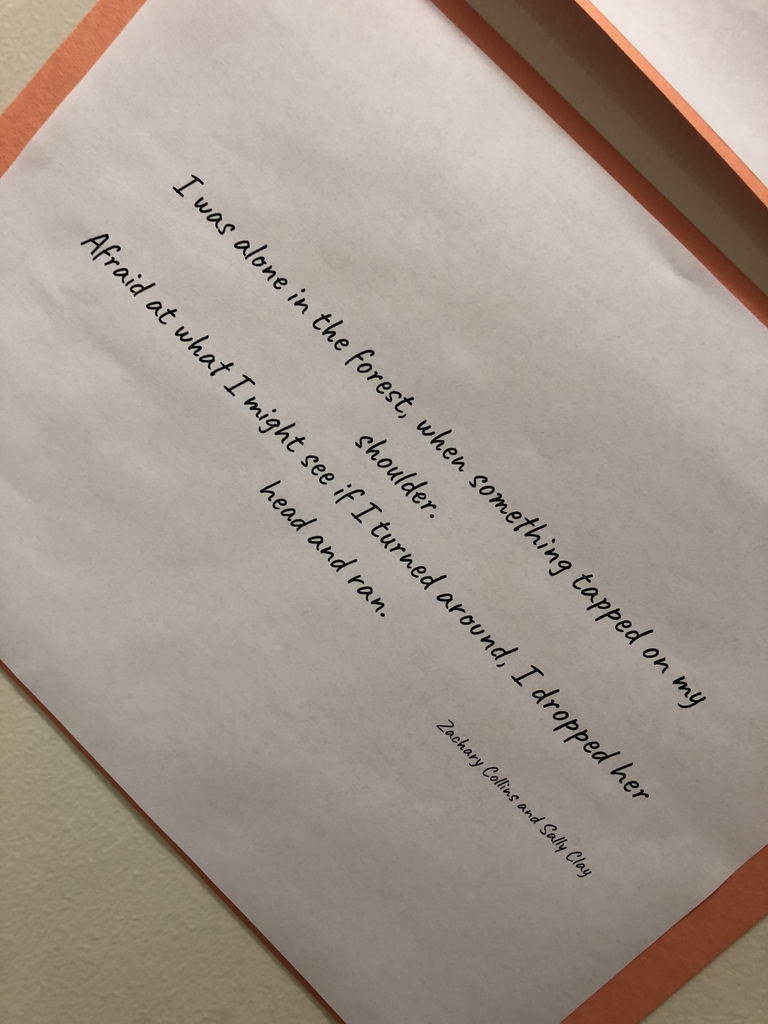 I was alone in the forest, when something tapped on my
shoulder.
Afraid at what I might see if I turned around, I dropped her
head and ran.
Zachary Collins and Sally Clay